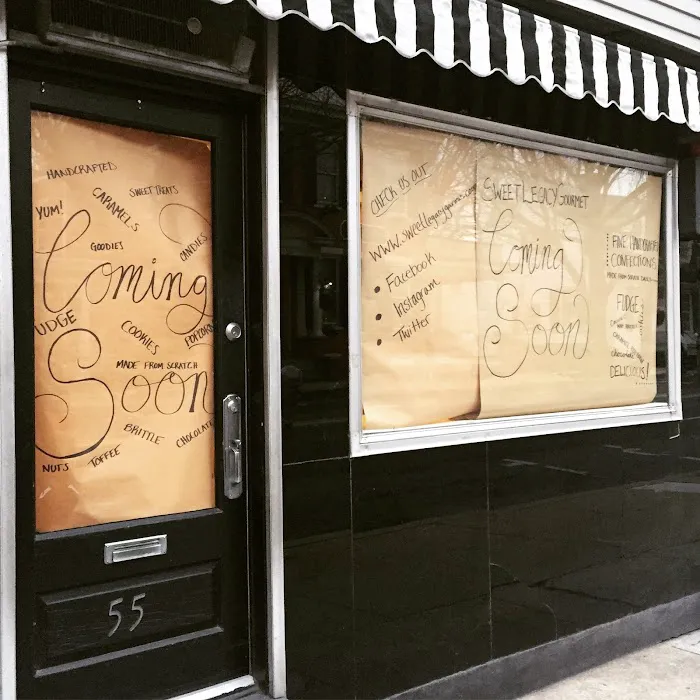 HANDCRAFTED
SWEET TREATS
YUM!
CARAMELS
GOODIES
CANDIES
Coming
UDGE
COOKIES
POPCORN
MADE FROM SCRATCH
Soon
BRITTLE
CHOCOLAT
NUTS
TOFFEE
55
CHECK US OUT
www.sweetlegacygourmet.com
Facebook
Instagram
Twitter
SWEET LEGACY GOURMET
Coming
Soon
FINE HANDCRAFTED
CONFECTIONS
MADE FROM SCRATCH
FUDGE
chocolate
DELICIOUS!